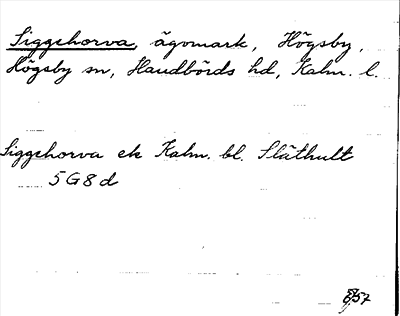 Siggehorva, ägomark, Högsby,
Högsby sn, Handbörds hd, Kalm. l.
Siggehorva ek Kalm. bl. Släthult
5 G 8 d
57